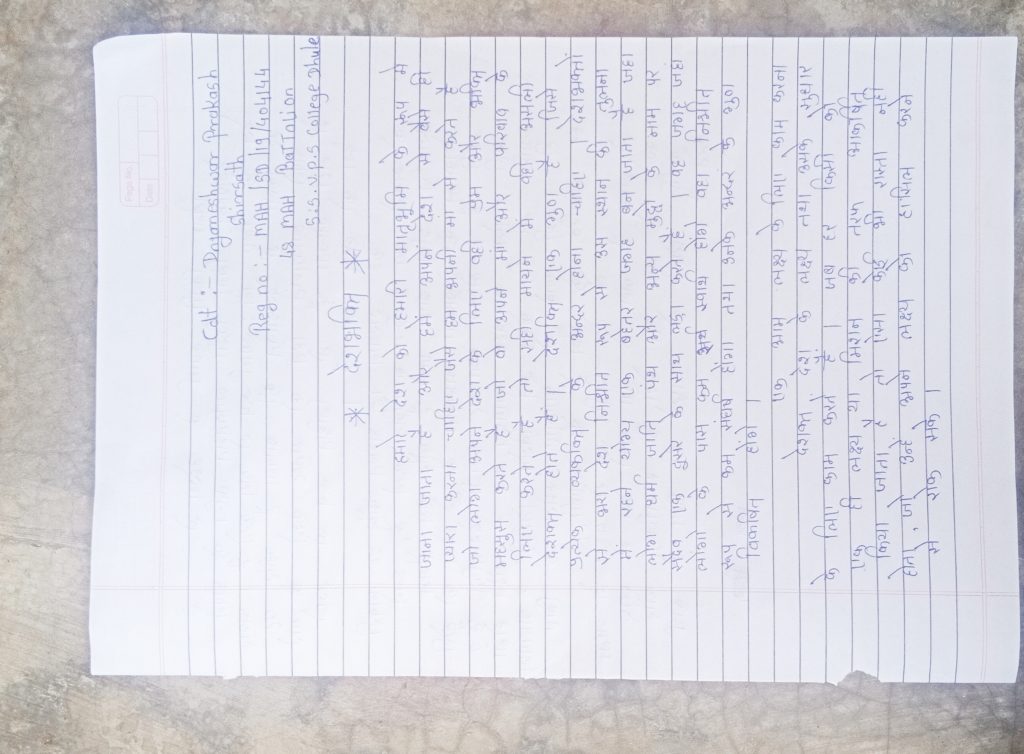 Page No.
Date
Cdt :- Dnyaneshwar Prakash
Shirsath
Reg no :- MAH/SD/19/404144
48 MAH BaTTalion
S.S.V.P.S College Dhule
* देशभक्ति *
हमारे देश को हमारी मातृभूमि के रूप मे
जाना जाता है और हमे अपने देश से वैसे ही
प्यार करना चाहिए जैसे हम अपनी मां से करते है
जो लोग अपने देश के लिए वही प्रेम और भक्ति
महसुस करते है जो वे अपने मां और परिवार के
लिए करते है तो सही मायने मे वही असली
देशभक्त होते है। देशभक्ति एक गुण है जिसे
प्रत्येक व्यक्ति के अन्दर होना चाहिए। देशभक्तों
से भरा देश निश्चीत रूप से उस स्थान की तुलना
में रहने योग्य एक बेहतर जगह बन जाता है जहा
लोग धर्म जाति पंथ और अन्य मुद्दो के नाम पर
सदैव एक दुसरे के साथ लढा करते हैं। वह जगह जहा
लोगो के पास कम स्वार्थ होगे वहा निश्चीत
रूप से कम संघर्ष होगा तथा उनके अन्दर के गुण
विकषित होंगे।
एक आम लक्ष्य के लिए काम करना
देशभक्त, देश के लक्ष्य तथा उसके सुधार
के लिए काम करते है। जब हर किसी को
एक ही लक्ष्य या मिशन की तरफ आकर्षित
किया जाता है तो ऐसा कोई भी रास्ता नही
होता, जो उन्हे अपने लक्ष्य को हासिल करने
से रोक सके।